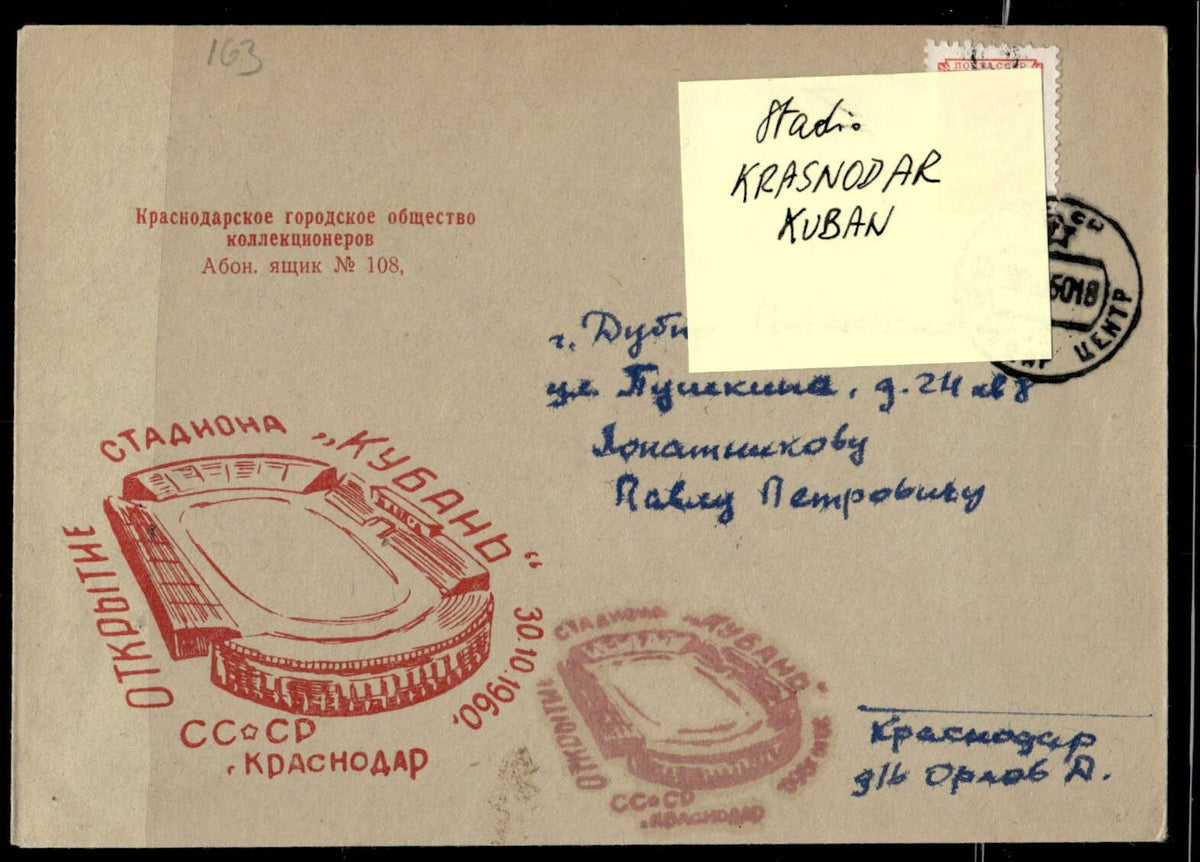 163
ПОЧТА СССР
Stadio
KRASNODAR
KUBAN
Краснодарское городское общество
коллекционеров
Абон. ящик № 108,
6018
ЦЕНТР
г. Дубно
ул. Пушкина, д. 24 кв 8
Лопатникову
Павлу Петровичу
ОТКРЫТИЕ СТАДИОНА „КУБАНЬ“ 30.10.1960,
СССР
г. КРАСНОДАР
ОТКРЫТИЕ СТАДИОНА „КУБАНЬ“ 30.10.1960,
СССР
г. КРАСНОДАР
Краснодар
д/в Орлов А.